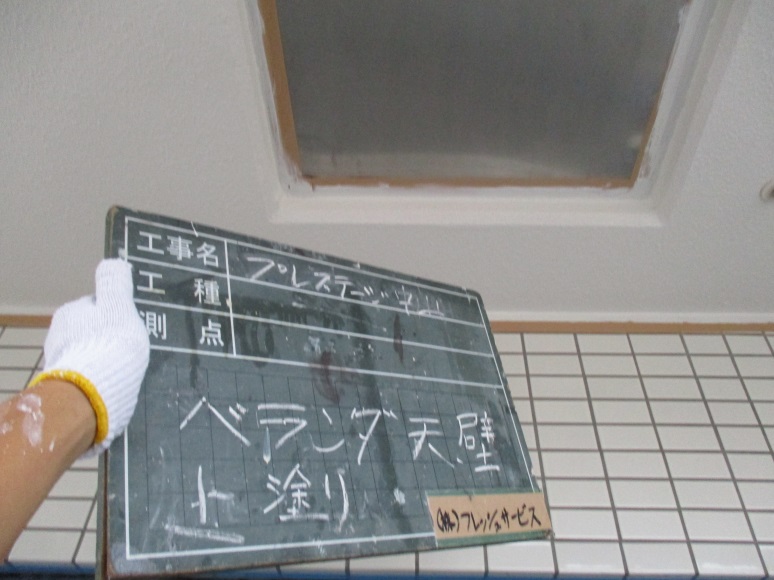 工事名 プレステージ
工種
測点
ベランダ天壁
上塗り
(株)フレッシュサービス